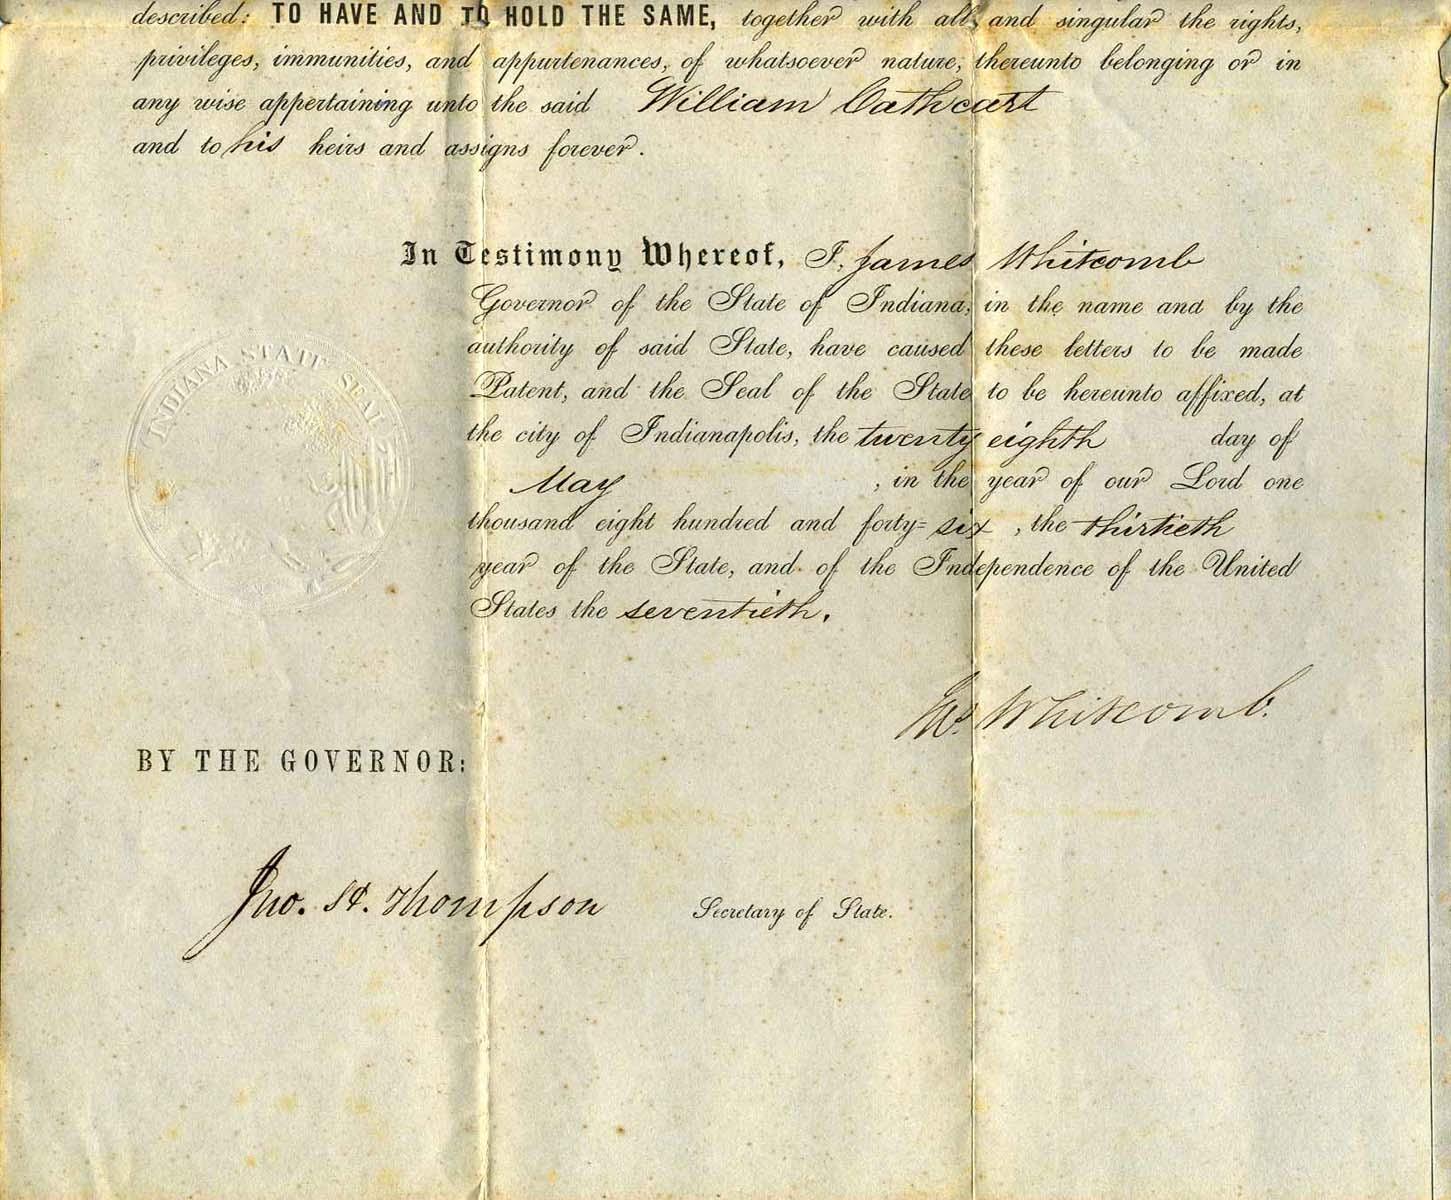 described: TO HAVE AND TO HOLD THE SAME, together with all and singular the rights,
privileges, immunities, and appurtenances, of whatsoever nature, thereunto belonging or in
any wise appertaining unto the said William Cathcart
and to his heirs and assigns forever.
In Testimony Whereof, I, James Whitcomb
Governor of the State of Indiana, in the name and by the
authority of said State, have caused these letters to be made
Patent, and the Seal of the State to be hereunto affixed, at
the city of Indianapolis, the twenty eighth day of
May , in the year of our Lord one
thousand eight hundred and forty=six , the thirtieth
year of the State, and of the Independence of the United
States the seventieth.
INDIANA STATE SEAL
Jas. Whitcomb.
BY THE GOVERNOR:
Jno. H. Thompson Secretary of State.